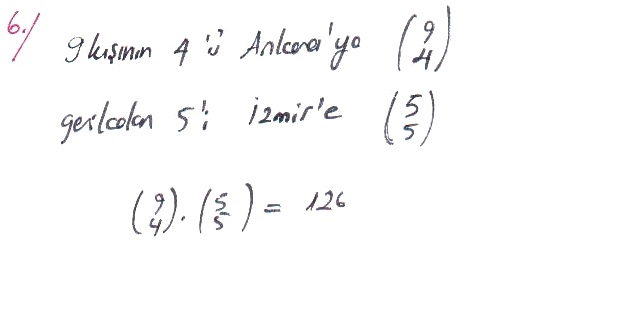 6./ 9 kişinin 4'ü Ankara'ya (9 4)
geri kalan 5'i İzmir'e (5 5)
(9 4) . (5 5) = 126